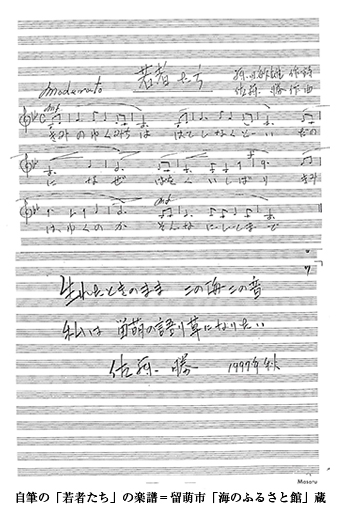 若者たち
藤田敏雄 作詩
佐藤 勝 作曲
moderato
mf
きみのゆくみちは はてしなくとーい だの
になぜ はをくいしばり きみ
mf
はゆくのか そんなにしてまで
生れたときのまま この海この音
私は 留萌の語り草になりたい
佐藤 勝 1997年秋
Masaru
自筆の「若者たち」の楽譜＝留萌市「海のふるさと館」蔵